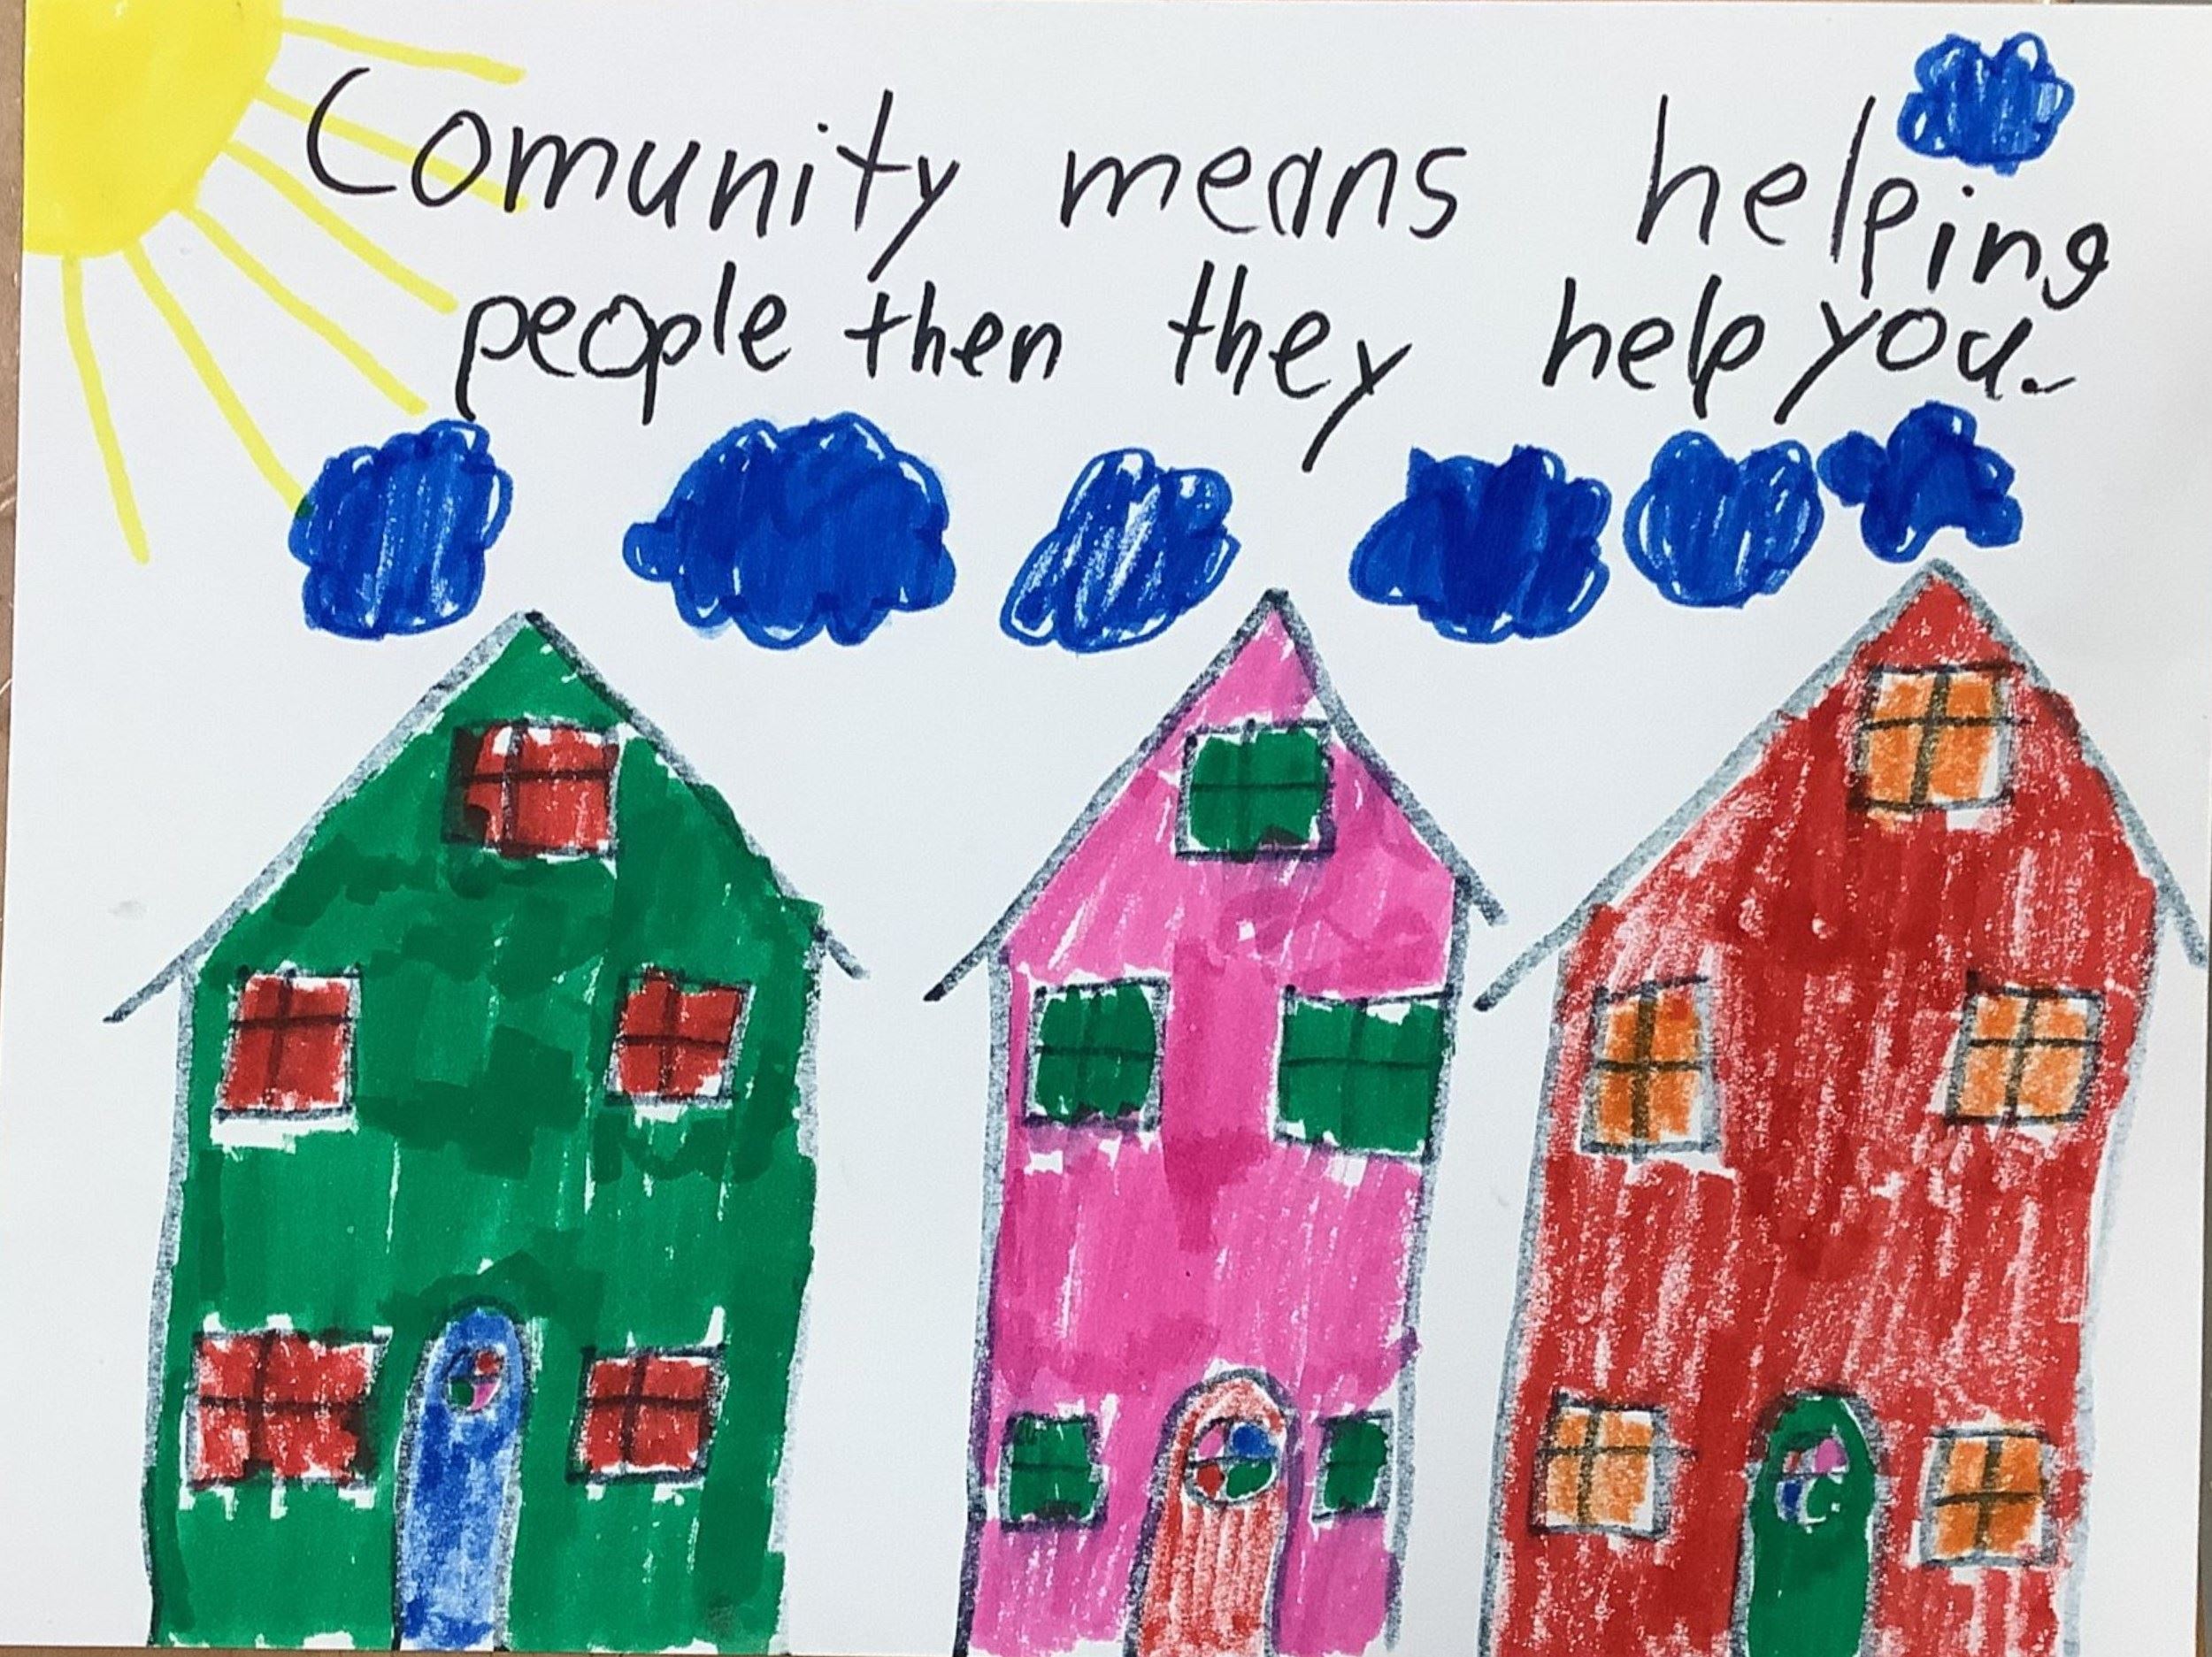 Comunity means helping
people then they help you.